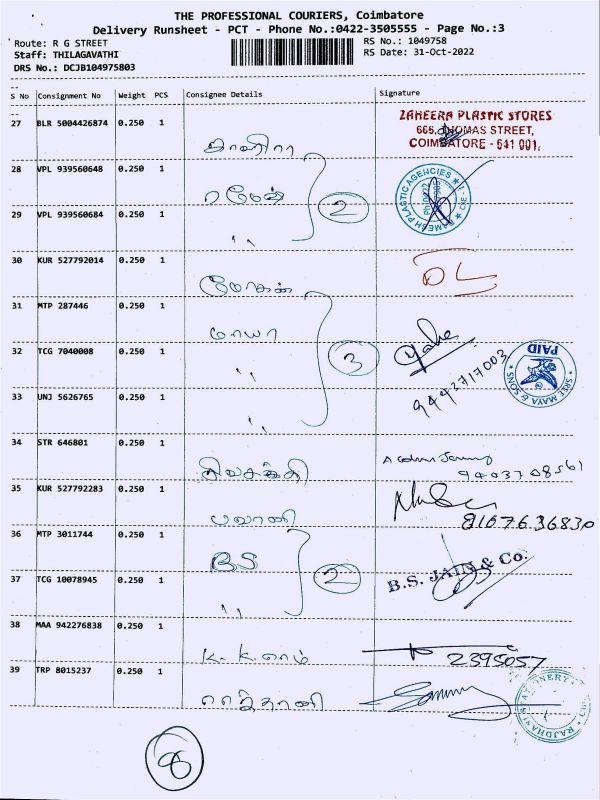 THE PROFESSIONAL COURIERS, Coimbatore
Delivery Runsheet - PCT - Phone No.:0422-3505555 - Page No.:3
Route: R G STREET
RS No.: 1049758
Staff: THILAGAVATHI
RS Date: 31-Oct-2022
DRS No.: DCJB104975803
S No Consignment No Weight PCS Consignee Details Signature
27 BLR 5004426874 0.250 1
ZAHEERA PLASTIC STORES
THOMAS STREET,
COIMBATORE - 641 001.
28 VPL 939560648 0.250 1 ரமேஷ் 2
RAMESH PLASTIC AGENCIES
29 VPL 939560684 0.250 1 ''
30 KUR 527792014 0.250 1 மோகன்
31 MTP 287446 0.250 1 மாயா
32 TCG 7040008 0.250 1 '' 3 9442717003
PAID
SREE MAYA & SONS
33 UNJ 5626765 0.250 1 ''
34 STR 646801 0.250 1 சிவசக்தி
9443708561
35 KUR 527792283 0.250 1 பவானி
8167636830
36 MTP 3011744 0.250 1 BS
37 TCG 10078945 0.250 1 '' 2 B.S. JAIN & Co.
38 MAA 942276838 0.250 1 K.K.ராம் 2395057
39 TRP 8015237 0.250 1
RAJDHANI STATIONERY
8